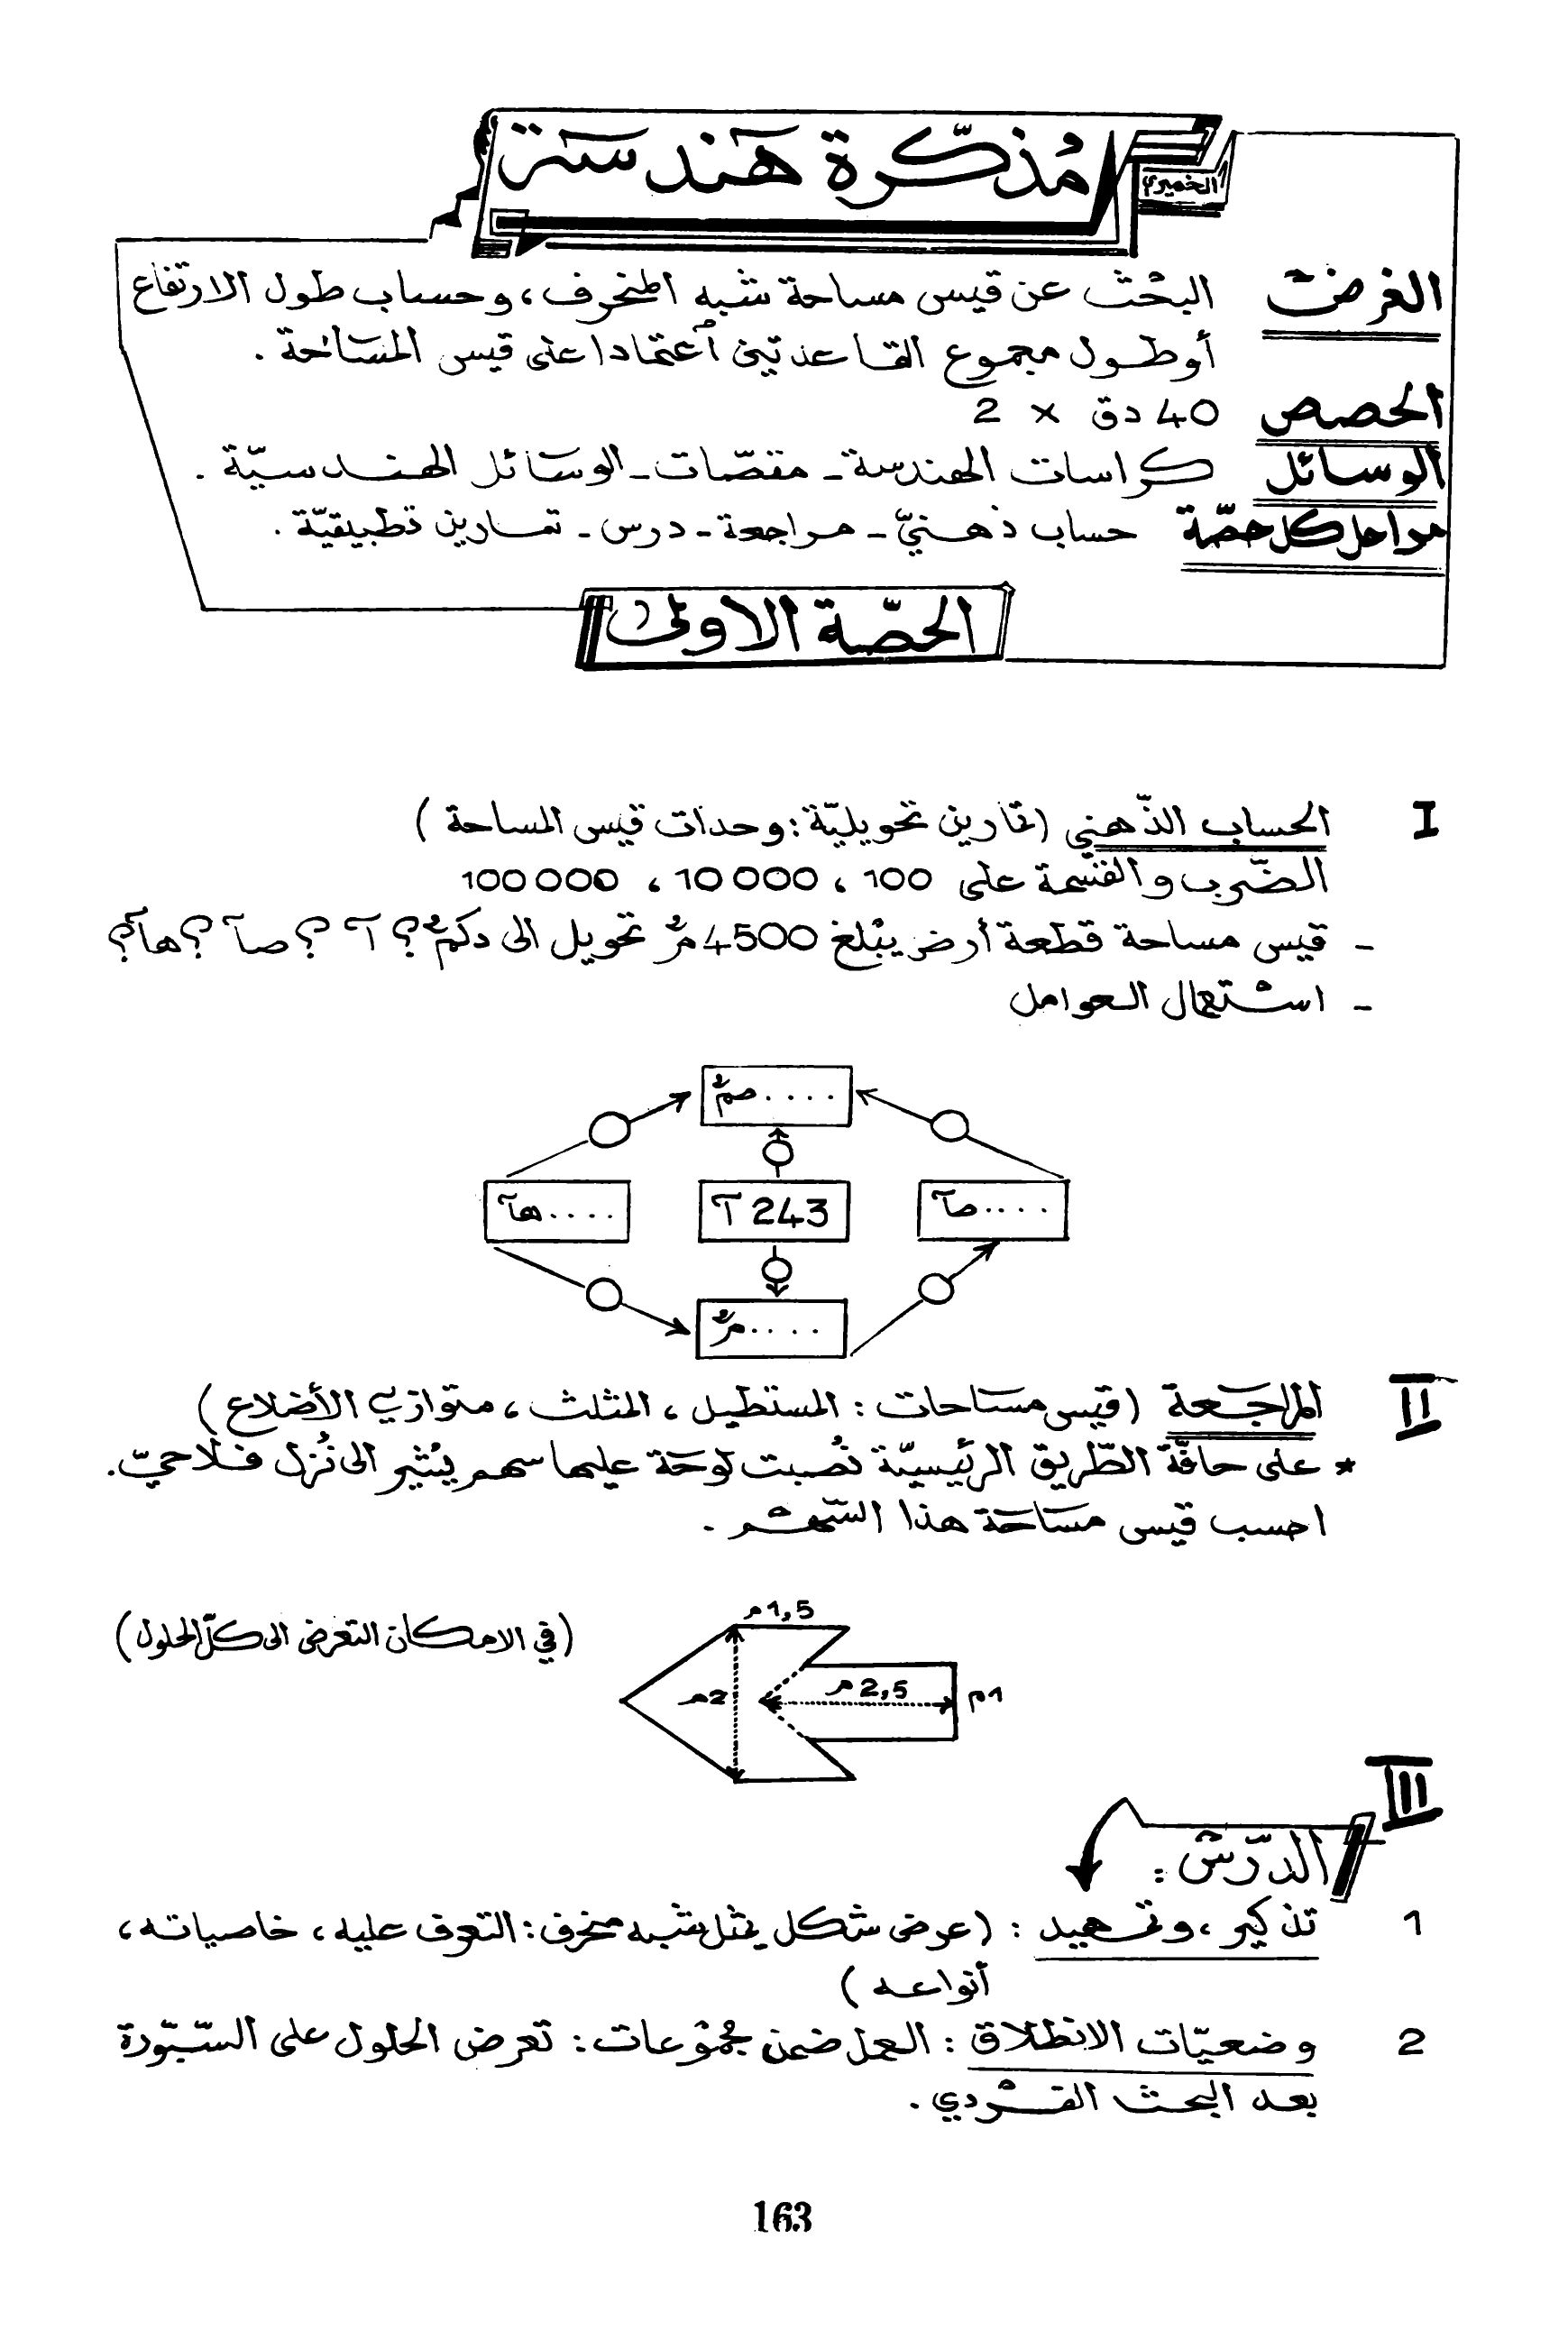 مُذكّرة هَندسَة
الخميري
الغرض البحْث عن قيس مساحة شبه المنحرف، وحساب طول الارتفاع
أو طول مجموع القاعدتين آعتمادا على قيس المسَاحة .
الحصص 40 دق × 2
الوسائل كراسات الهندسة - مقصّات - الوسَائل الهندسيّة .
مراحل كل حصّة حساب ذهنيّ - مراجعة - درس - تمارين تطبيقيّة .
الحصّة الاولى
I الحساب الذّهني (تمارين تحويليّة : وحدات قيس المساحة)
الضّرب والقسْمة على 100 ، 10 000 ، 100 000
- قيس مساحة قطعة أرض يبْلغ 4500 م² تحويل الى دكم² ؟ آ ؟ صآ ؟ هآ ؟
- استْعمال العوامل
.... صم²
.... صآ
243 آ
.... هآ
.... م²
II المراجَعة (قيس مسَاحات : المستطيل ، المثلث ، متوازي الأضلاع)
* على حافّة الطّريق الرئيسيّة نُصبت لوحَة عليها سهم يشْير الى نُزل فلاحيّ.
احسب قيس مسَاحَة هذا السّهْم .
1,5 م
(في الامكان التعرض الى كلّ الحلول)
2,5 م
2 م
1 م
III
الدّرسْ :
1 تذكير ، وتمهيد : (عرض شكل يمثل شبه منحرف : التعرف عليه ، خاصياته ،
أنواعه)
2 وضعيّات الانطلاق : العمل ضمن مجموْعات : تعرض الحلول على السّبّورة
بعد البحث الفرْدي .
163